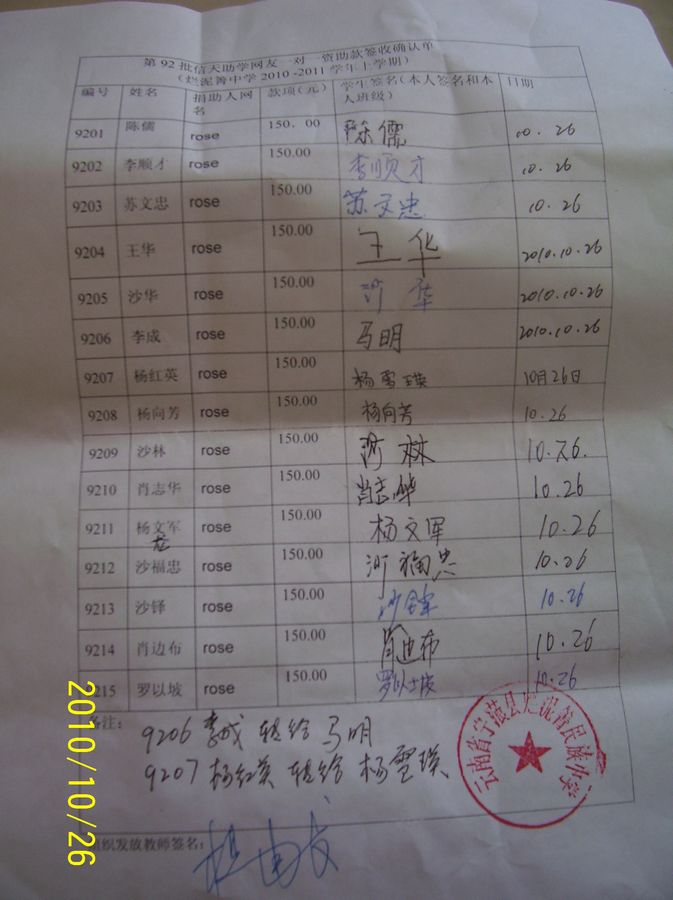 第 92 批信天助学网友一对一资助款签收确认单
（烂泥箐中学 2010 -2011 学年上学期）
编号 姓名 捐助人网名 款项(元) 学生签名(本人签名和本人班级) 日期
9201 陈儒 rose 150．00 陈儒 10. 26
9202 李顺才 rose 150.00 李顺才 10. 26
9203 苏文忠 rose 150.00 苏文忠 10. 26
9204 王华 rose 150.00 王华 2010.10.26
9205 沙华 rose 150.00 沙华 2010.10.26
9206 李成 rose 150.00 马明 2010.10.26
9207 杨红英 rose 150.00 杨雪瑛 10月26日
9208 杨向芳 rose 150.00 杨向芳 10.26
9209 沙林 rose 150.00 沙林 10.26.
9210 肖志华 rose 150.00 肖志华 10.26
9211 杨文军 rose 150.00 杨文军 10.26
9212 沙福忠 rose 150.00 沙福忠 10.26
9213 沙铎 rose 150.00 沙铎 10.26
9214 肖边布 rose 150.00 肖迪布 10.26
215 罗以坡 rose 150.00 罗以坡 10.26
备注：
9206 李成 转给 马明
9207 杨红英 转给 杨雪瑛
云南省宁蒗县烂泥箐民族小学
组织发放教师签名：
2010/10/26